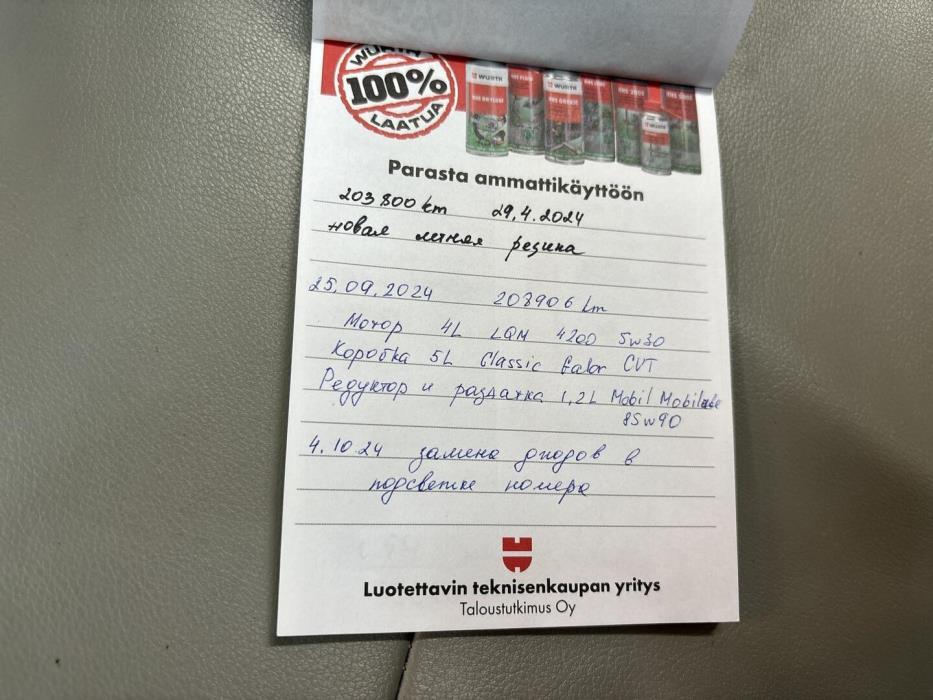 WÜRTH
100%
LAATUA
WÜRTH
WÜRTH
WÜRTH
Parasta ammattikäyttöön
203 800 km 29.4.2024
новая летняя резина
25.09.2024 208906 km
Мотор 4L LQM 4200 5w30
Коробка 5L Classic CVT
Редуктор и раздатка 1,2L Mobil Mobilube
85w90
4.10.24 замена диодов в
подсветке номера
Luotettavin teknisenkaupan yritys
Taloustutkimus Oy